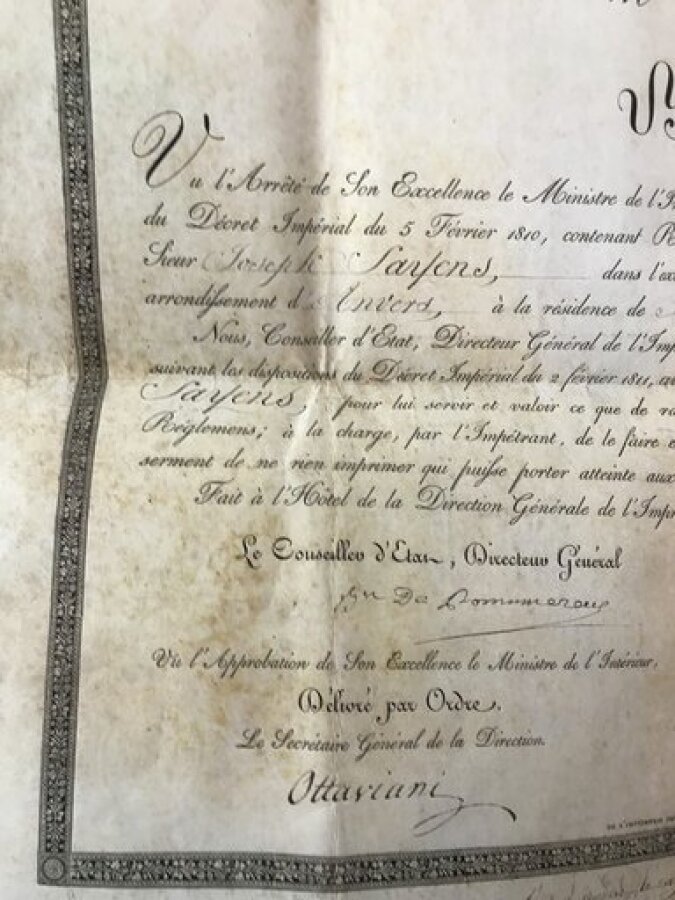 Vu l'Arrêté de Son Excellence le Ministre de l'I
du Décret Impérial du 5 Février 1810, contenant R
Sieur Joseph Sayens, dans l'ex
arrondissement d'Anvers, à la résidence de
Nous, Conseiller d'Etat, Directeur Général de l'Imp
suivant les dispositions du Décret Impérial du 2 février 1811, a
Sayens, pour lui servir et valoir ce que de ra
Réglemens; à la charge, par l'Impétrant, de le faire e
serment de ne rien imprimer qui puisse porter atteinte aux
Fait à l'Hôtel de la Direction Générale de l'Impr
Le Conseiller d'Etat, Directeur Général
Bn De Pommereul
Vu l'Approbation de Son Excellence le Ministre de l'Intérieur,
Délivré par Ordre.
Le Secrétaire Général de la Direction.
Ottaviani
DE L'IMPRIMERIE